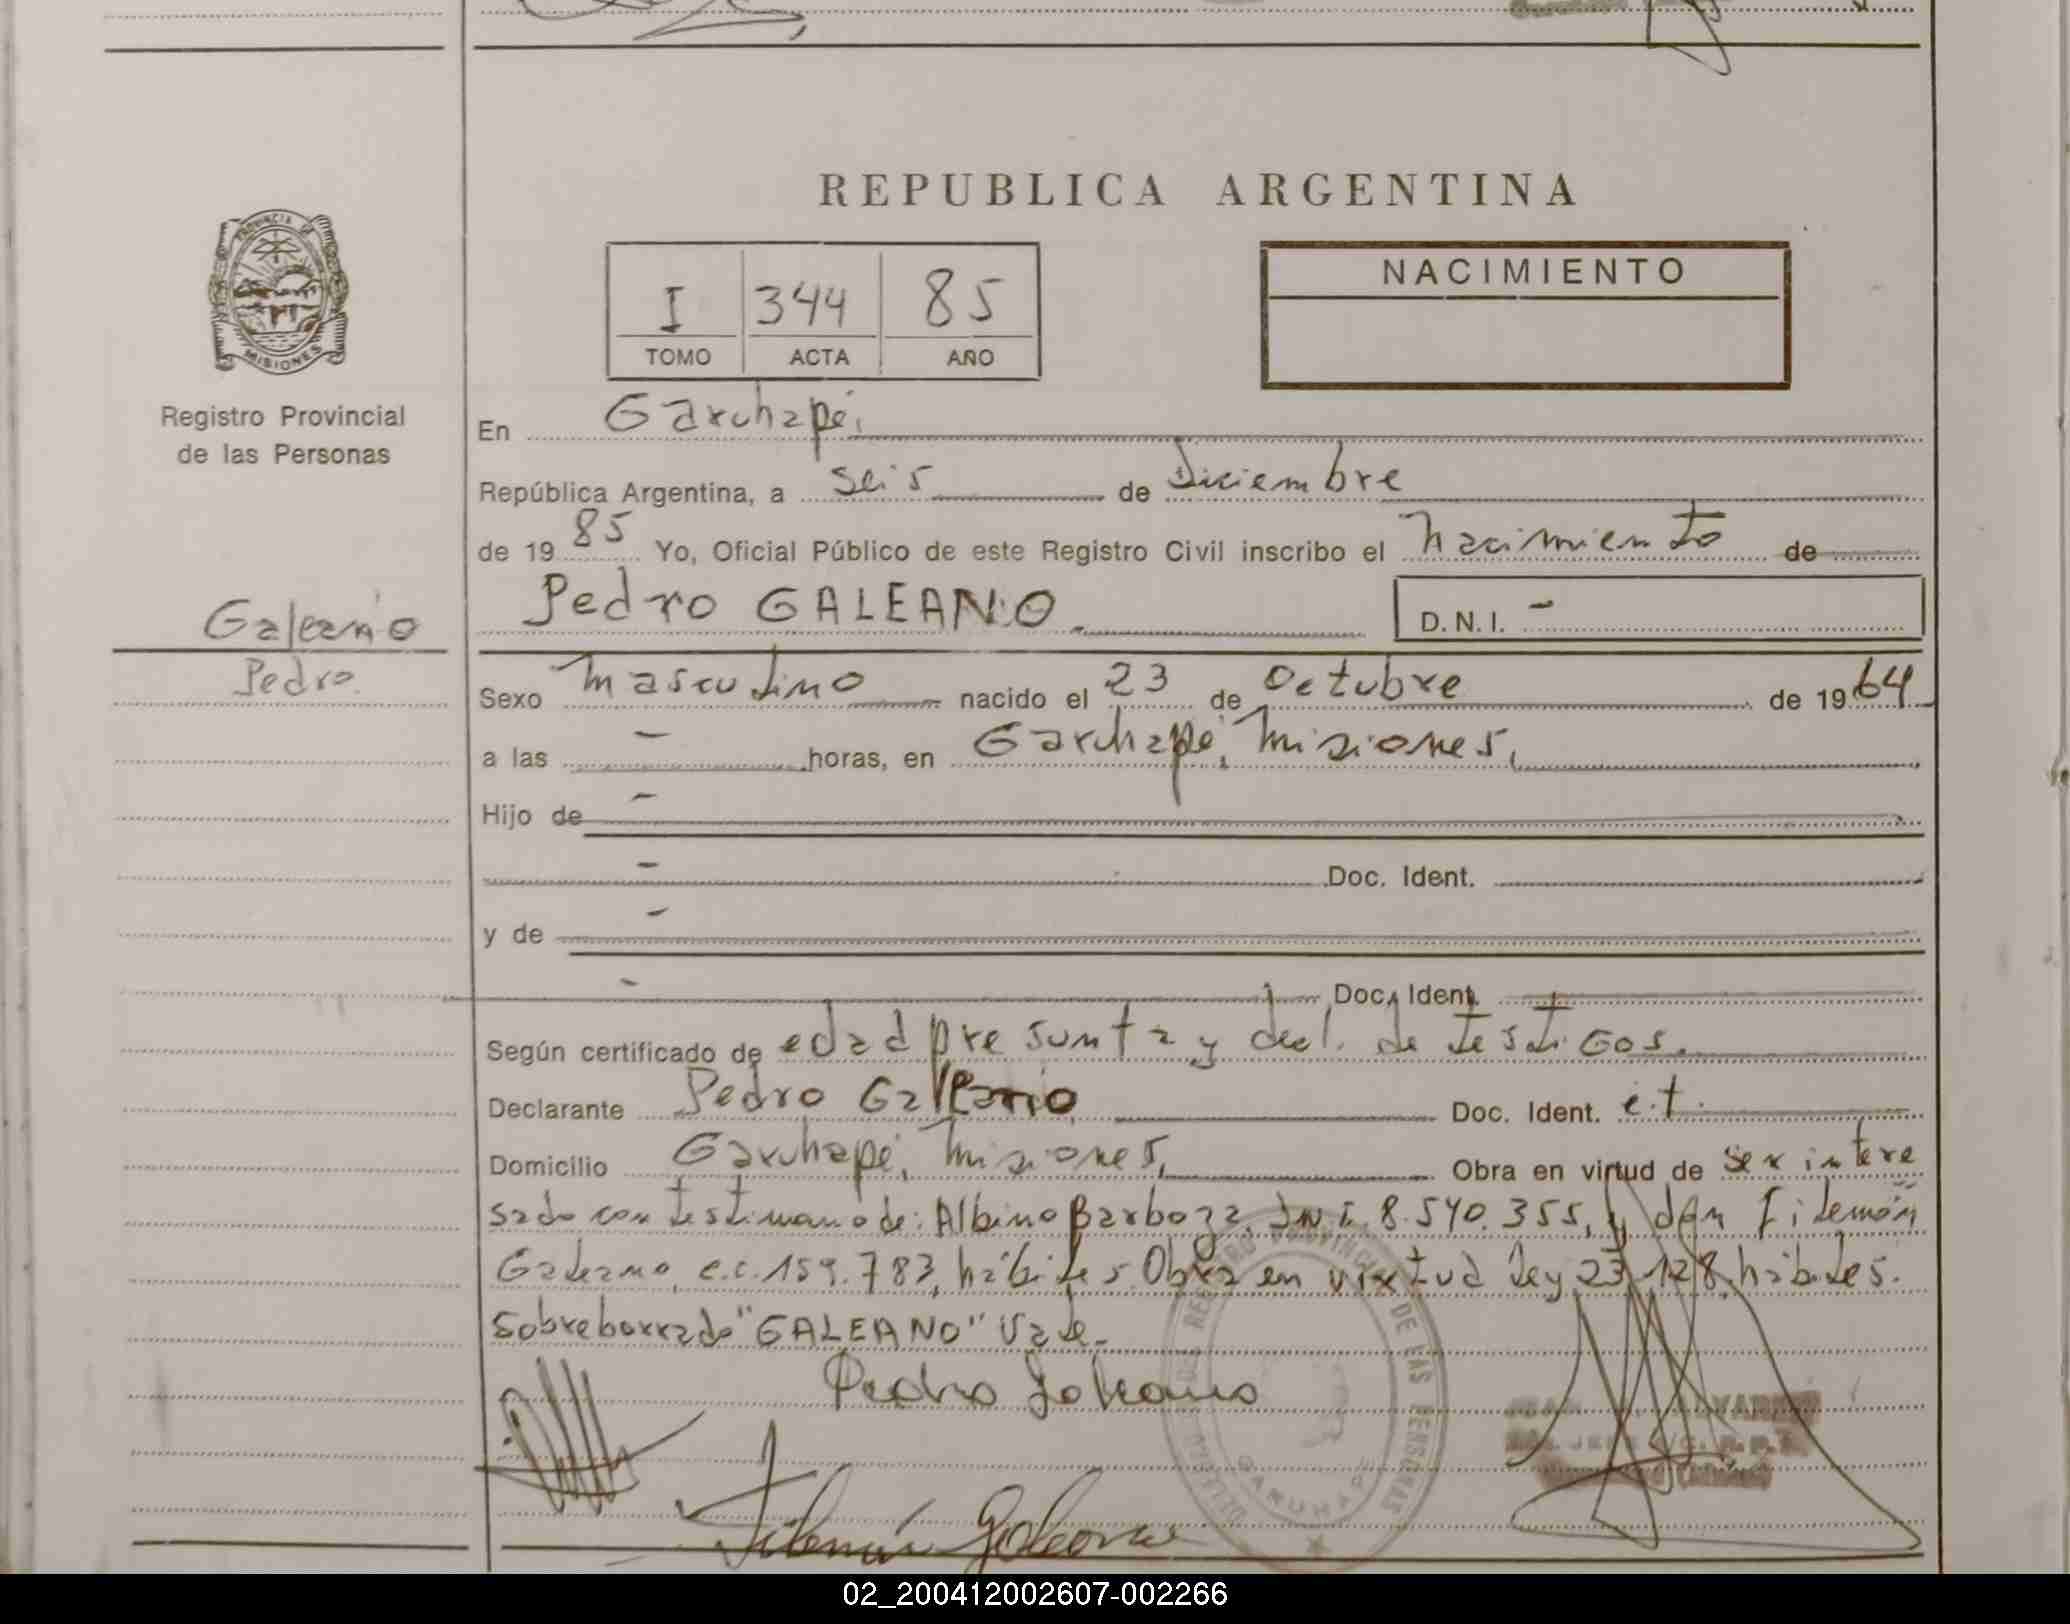 REPUBLICA ARGENTINA
PROVINCIA DE
MISIONES
Registro Provincial
de las Personas
I 344 85
TOMO ACTA AÑO
NACIMIENTO
En Garuhapé,
República Argentina, a seis de Diciembre
de 19 85 Yo, Oficial Público de este Registro Civil inscribo el nacimiento de
Pedro GALEANO. D. N. I. -
Galeano
Pedro.
Sexo masculino nacido el 23 de Octubre de 19 64
a las - horas, en Garuhapé, Misiones,
Hijo de -
- Doc. Ident.
y de -
- Doc. Ident.
Según certificado de edad presunta y decl. de testigos.
Declarante Pedro Galeano Doc. Ident. e.t.
Domicilio Garuhapé, Misiones, Obra en virtud de ser intere
sado con testimonio de: Albino Barboza, DNI. 8.540.355, y don Filemón
Galeano, c.c. 159.783, hábiles. Obra en virtud Ley 23.128. hábiles.
Sobreborrado "GALEANO" Vale.
Pedro Galeano
Filemón Galeano
REGISTRO PROVINCIAL DE LAS PERSONAS
GARUHAPE
02_200412002607-002266